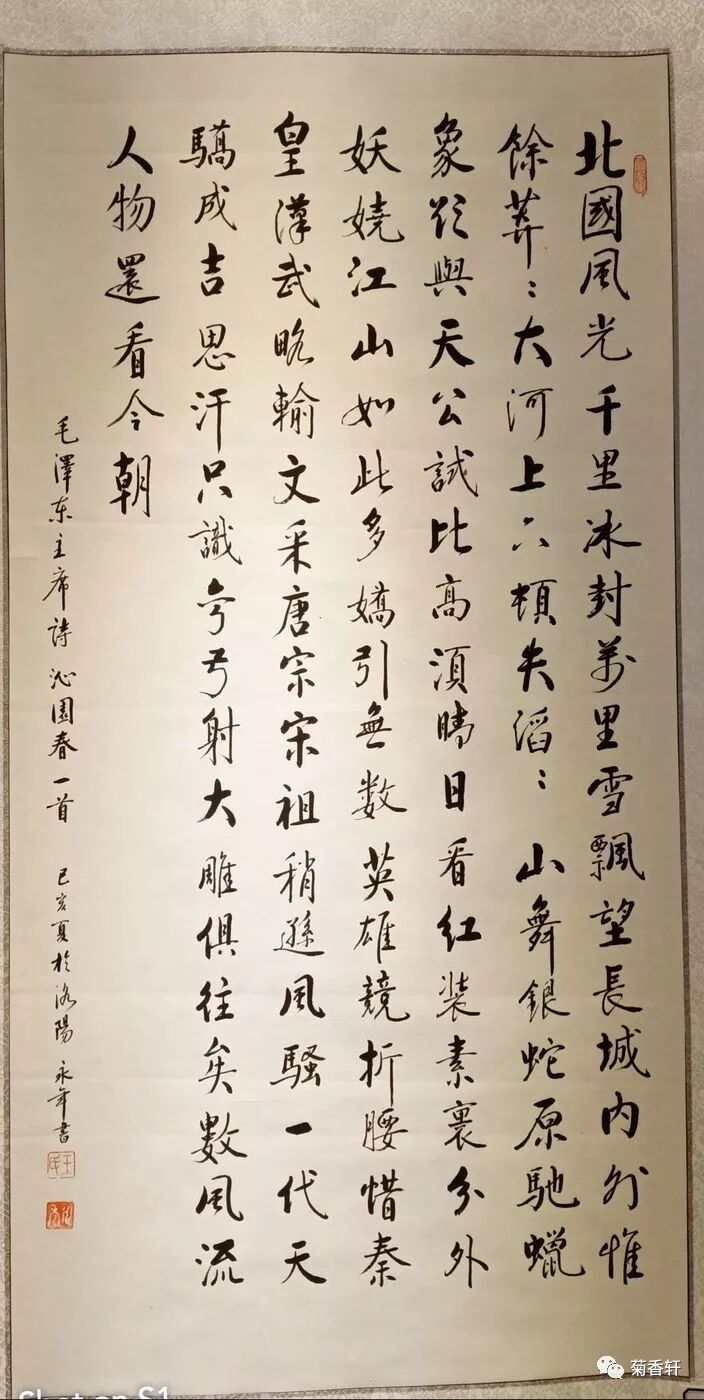 北國風光千里冰封萬里雪飄望長城内外惟
餘莽〻大河上下頓失滔〻山舞銀蛇原馳蠟
象欲與天公試比高須晴日看红装素裹分外
妖嬈江山如此多嬌引無数英雄競折腰惜秦
皇漢武略輸文采唐宗宋祖稍遜風騷一代天
驕成吉思汗只識弯弓射大雕俱往矣數風流
人物還看今朝
毛澤东主席詩沁園春一首 己亥夏於洛陽 永年書
菊香轩
Shot on S1